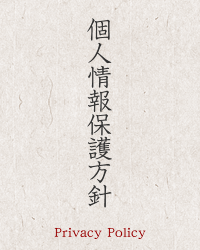 個人情報保護方針
Privacy Policy